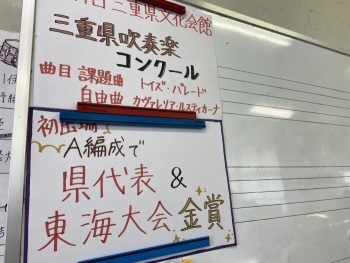 日 三重県文化会館
三重県吹奏楽
コンクール
曲目 課題曲 トイズ・パレード
自由曲 カヴァレリア・ルスティカーナ
初出場♪
A編成で
県代表 &
東海大会 金賞